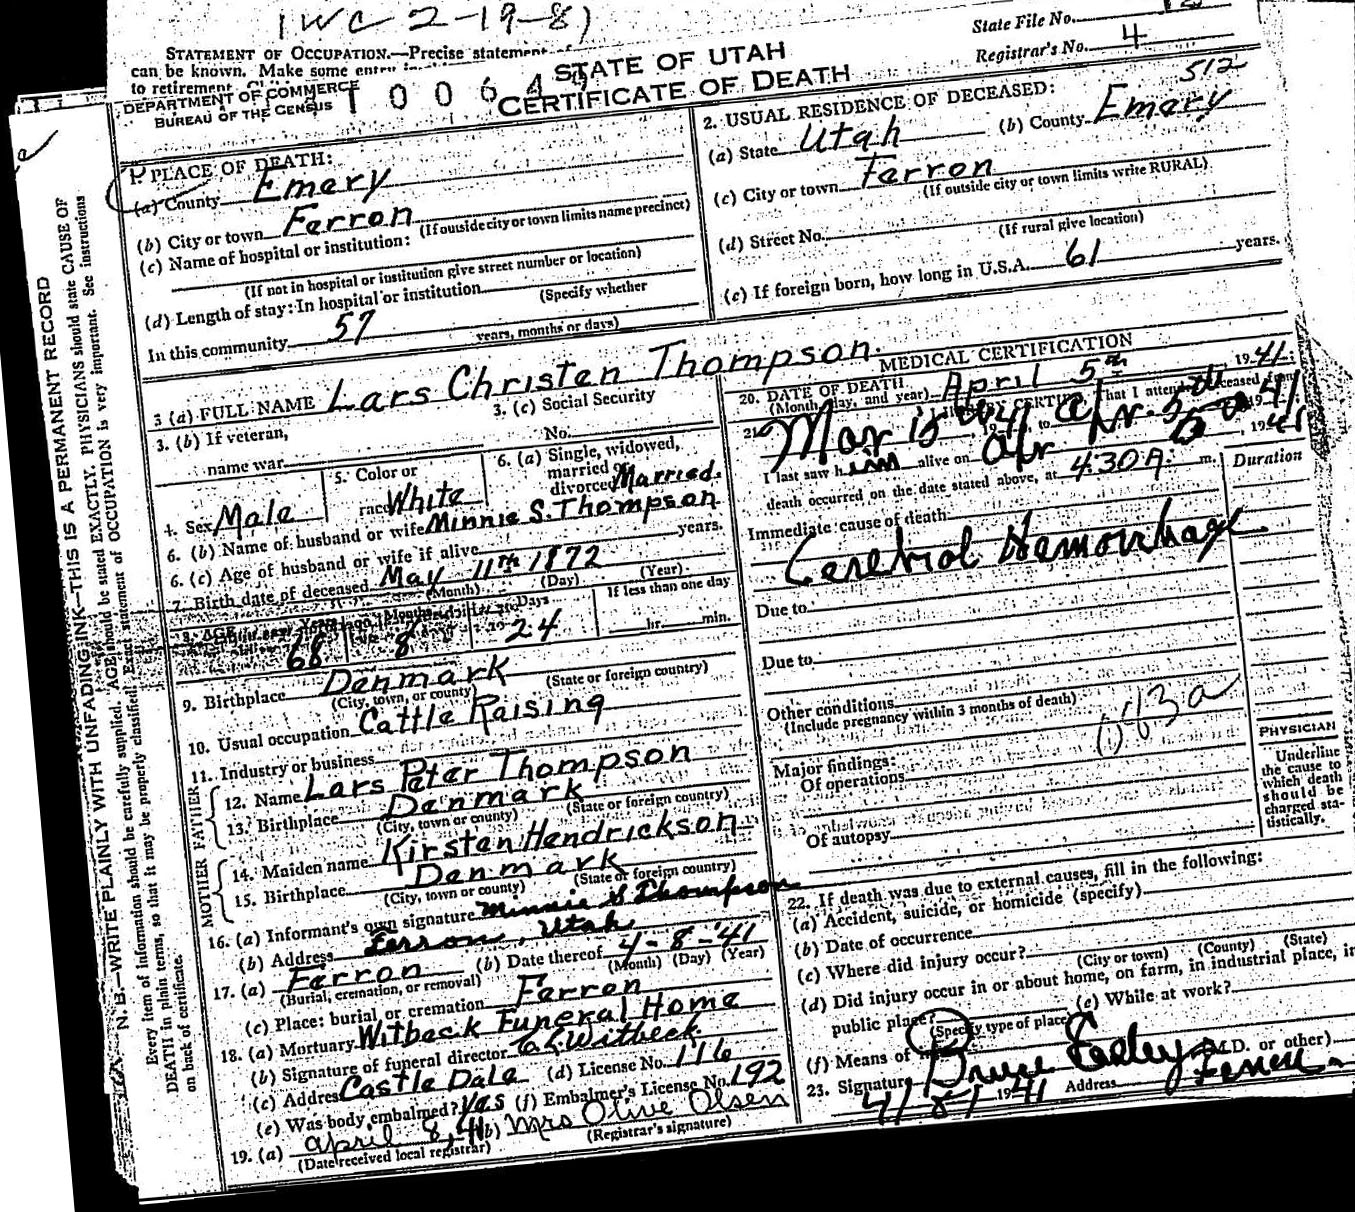 1WC 2-19-81
STATEMENT OF OCCUPATION.—Precise statement of
can be known. Make some entry
to retirement
State File No.
Registrar's No. 4
DEPARTMENT OF COMMERCE
BUREAU OF THE CENSUS
STATE OF UTAH
CERTIFICATE OF DEATH
512
1. PLACE OF DEATH:
(a) County Emery
(b) City or town Ferron
(If outside city or town limits name precinct)
(c) Name of hospital or institution:
(If not in hospital or institution give street number or location)
(d) Length of stay: In hospital or institution
(Specify whether
In this community 57
years, months or days)
2. USUAL RESIDENCE OF DECEASED:
(a) State Utah (b) County Emery
(c) City or town Ferron
(If outside city or town limits write RURAL)
(d) Street No.
(If rural give location)
(e) If foreign born, how long in U.S.A. 61 years.
3 (a) FULL NAME Lars Christen Thompson.
3. (b) If veteran,
name war
3. (c) Social Security
No.
4. Sex Male
5. Color or
race White
6. (a) Single, widowed,
married or
divorced Married.
6. (b) Name of husband or wife Minnie S. Thompson
6. (c) Age of husband or wife if alive years.
7. Birth date of deceased May 11th 1872
(Month) (Day) (Year)
8. AGE Years Months Days If less than one day
68 8 24 hr. min.
9. Birthplace Denmark
(City, town, or county) (State or foreign country)
10. Usual occupation Cattle Raising
11. Industry or business
FATHER
12. Name Lars Peter Thompson
13. Birthplace Denmark
(City, town or county) (State or foreign country)
MOTHER
14. Maiden name Kirsten Hendrickson
15. Birthplace Denmark
(City, town or county) (State or foreign country)
16. (a) Informant's own signature Minnie S Thompson
(b) Address Ferron, Utah
17. (a) Ferron (b) Date thereof 4-8-'41
(Burial, cremation, or removal) (Month) (Day) (Year)
(c) Place: burial or cremation Ferron
18. (a) Mortuary Witbeck Funeral Home
(b) Signature of funeral director Witbeck
(c) Address Castle Dale (d) License No. 116
(e) Was body embalmed? Yes (f) Embalmer's License No. 192
19. (a) April 8, 41 (b) Mrs Olive Olsen
(Date received local registrar) (Registrar's signature)
MEDICAL CERTIFICATION
20. DATE OF DEATH April 5th 1941
(Month, day, and year)
21. I HEREBY CERTIFY That I attended deceased from
Mar 15
I last saw him alive on Apr
death occurred on the date stated above, at 4:30 A. m.
Duration
Immediate cause of death
Cerebral Hemorrhage
Due to
Due to
Other conditions
(Include pregnancy within 3 months of death)
Major findings:
Of operations
Of autopsy
PHYSICIAN
Underline
the cause to
which death
should be
charged sta-
tistically.
22. If death was due to external causes, fill in the following:
(a) Accident, suicide, or homicide (specify)
(b) Date of occurrence
(c) Where did injury occur?
(City or town) (County) (State)
(d) Did injury occur in or about home, on farm, in industrial place, in
public place? (e) While at work?
(Specify type of place)
(f) Means of
23. Signature Bruce (M.D. or other)
4/8/ 1941 Address Ferron
N. B.—WRITE PLAINLY WITH UNFADING INK—THIS IS A PERMANENT RECORD
Every item of information should be carefully supplied. AGE should be stated EXACTLY. PHYSICIANS should state CAUSE OF
DEATH in plain terms, so that it may be properly classified. Exact statement of OCCUPATION is very important. See instructions
on back of certificate.